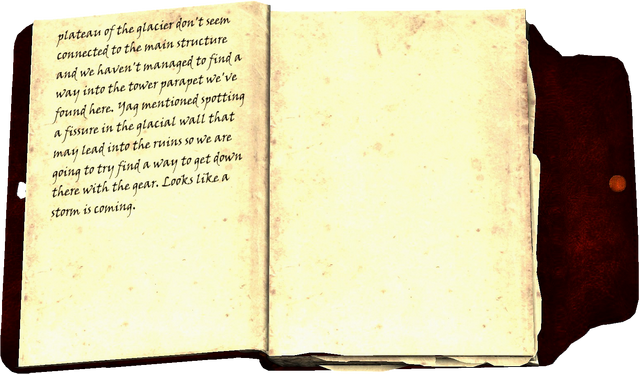 plateau of the glacier don't seem
connected to the main structure
and we haven't managed to find a
way into the tower parapet we've
found here. Yag mentioned spotting
a fissure in the glacial wall that
may lead into the ruins so we are
going to try find a way to get down
there with the gear. Looks like a
storm is coming.